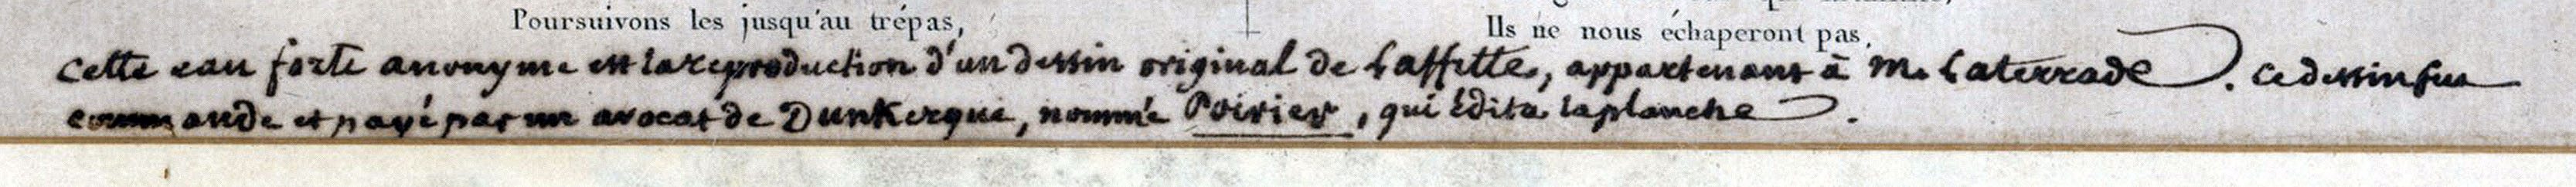 Poursuivons les jusqu'au trépas,
Ils ne nous échaperont pas,
Cette eau forte anonyme est la reproduction d'un dessin original de Laffitte, appartenant à M. Laterrade. Ce dessin fut
commandé et payé par un avocat de Dunkerque, nommé Poirier, qui édita la planche.